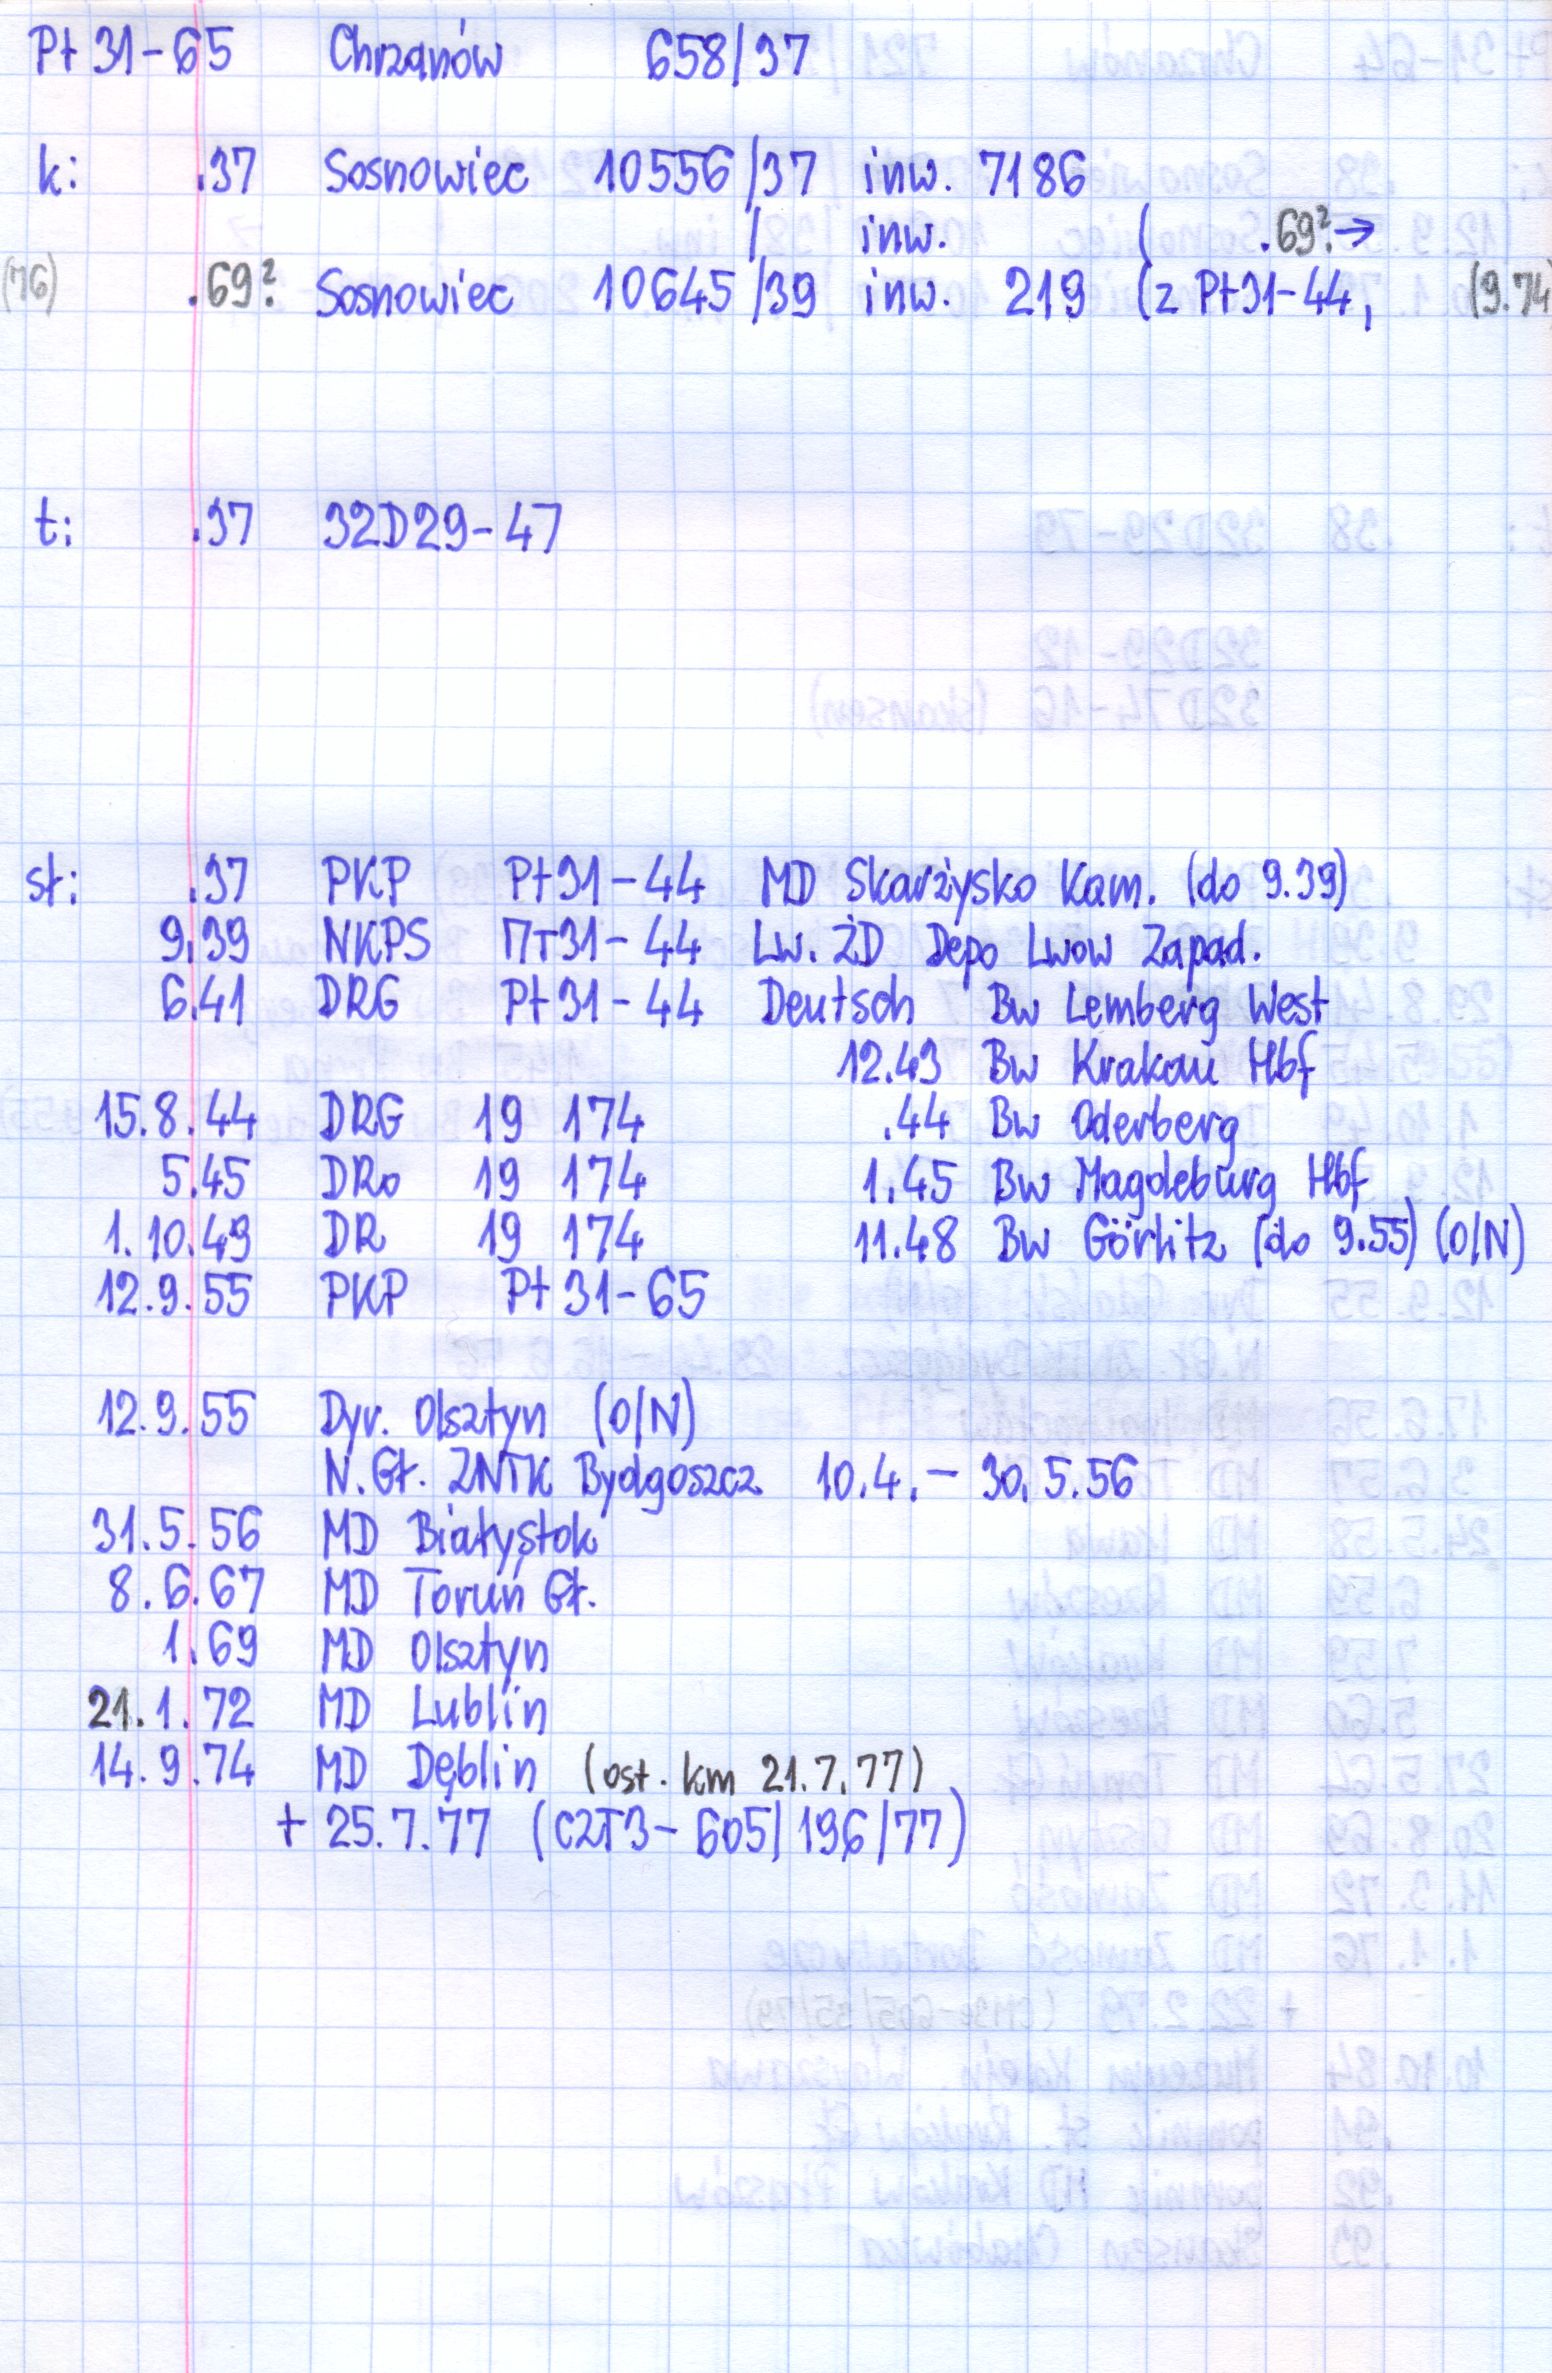 Pt 31-65 Chrzanów 658/37
k: .37 Sosnowiec 10556/37 inw. 7186
/ inw. ( .69?→
(76) .69? Sosnowiec 10645/39 inw. 219 (z Pt31-44, (9.74)
t: .37 32D29-47
sł: .37 PKP Pt31-44 MD Skarżysko Kam. (do 9.39)
9.39 NKPS Пт31-44 Lw. ŻD Depo Lwow Zapad.
6.41 DRG Pt31-44 Deutsch Bw Lemberg West
12.43 Bw Krakau Hbf
15.8.44 DRG 19 174 .44 Bw Oderberg
5.45 DRo 19 174 1.45 Bw Magdeburg Hbf
1.10.49 DR 19 174 11.48 Bw Görlitz (do 9.55) (O/N)
12.9.55 PKP Pt31-65
12.9.55 Dyr. Olsztyn (O/N)
N.Gł. ZNTK Bydgoszcz 10.4.- 30.5.56
31.5.56 MD Białystok
8.6.67 MD Toruń Gł.
1.69 MD Olsztyn
21.1.72 MD Lublin
14.9.74 MD Dęblin (ost. km 21.7.77)
+ 25.7.77 (C2T3-605/196/77)